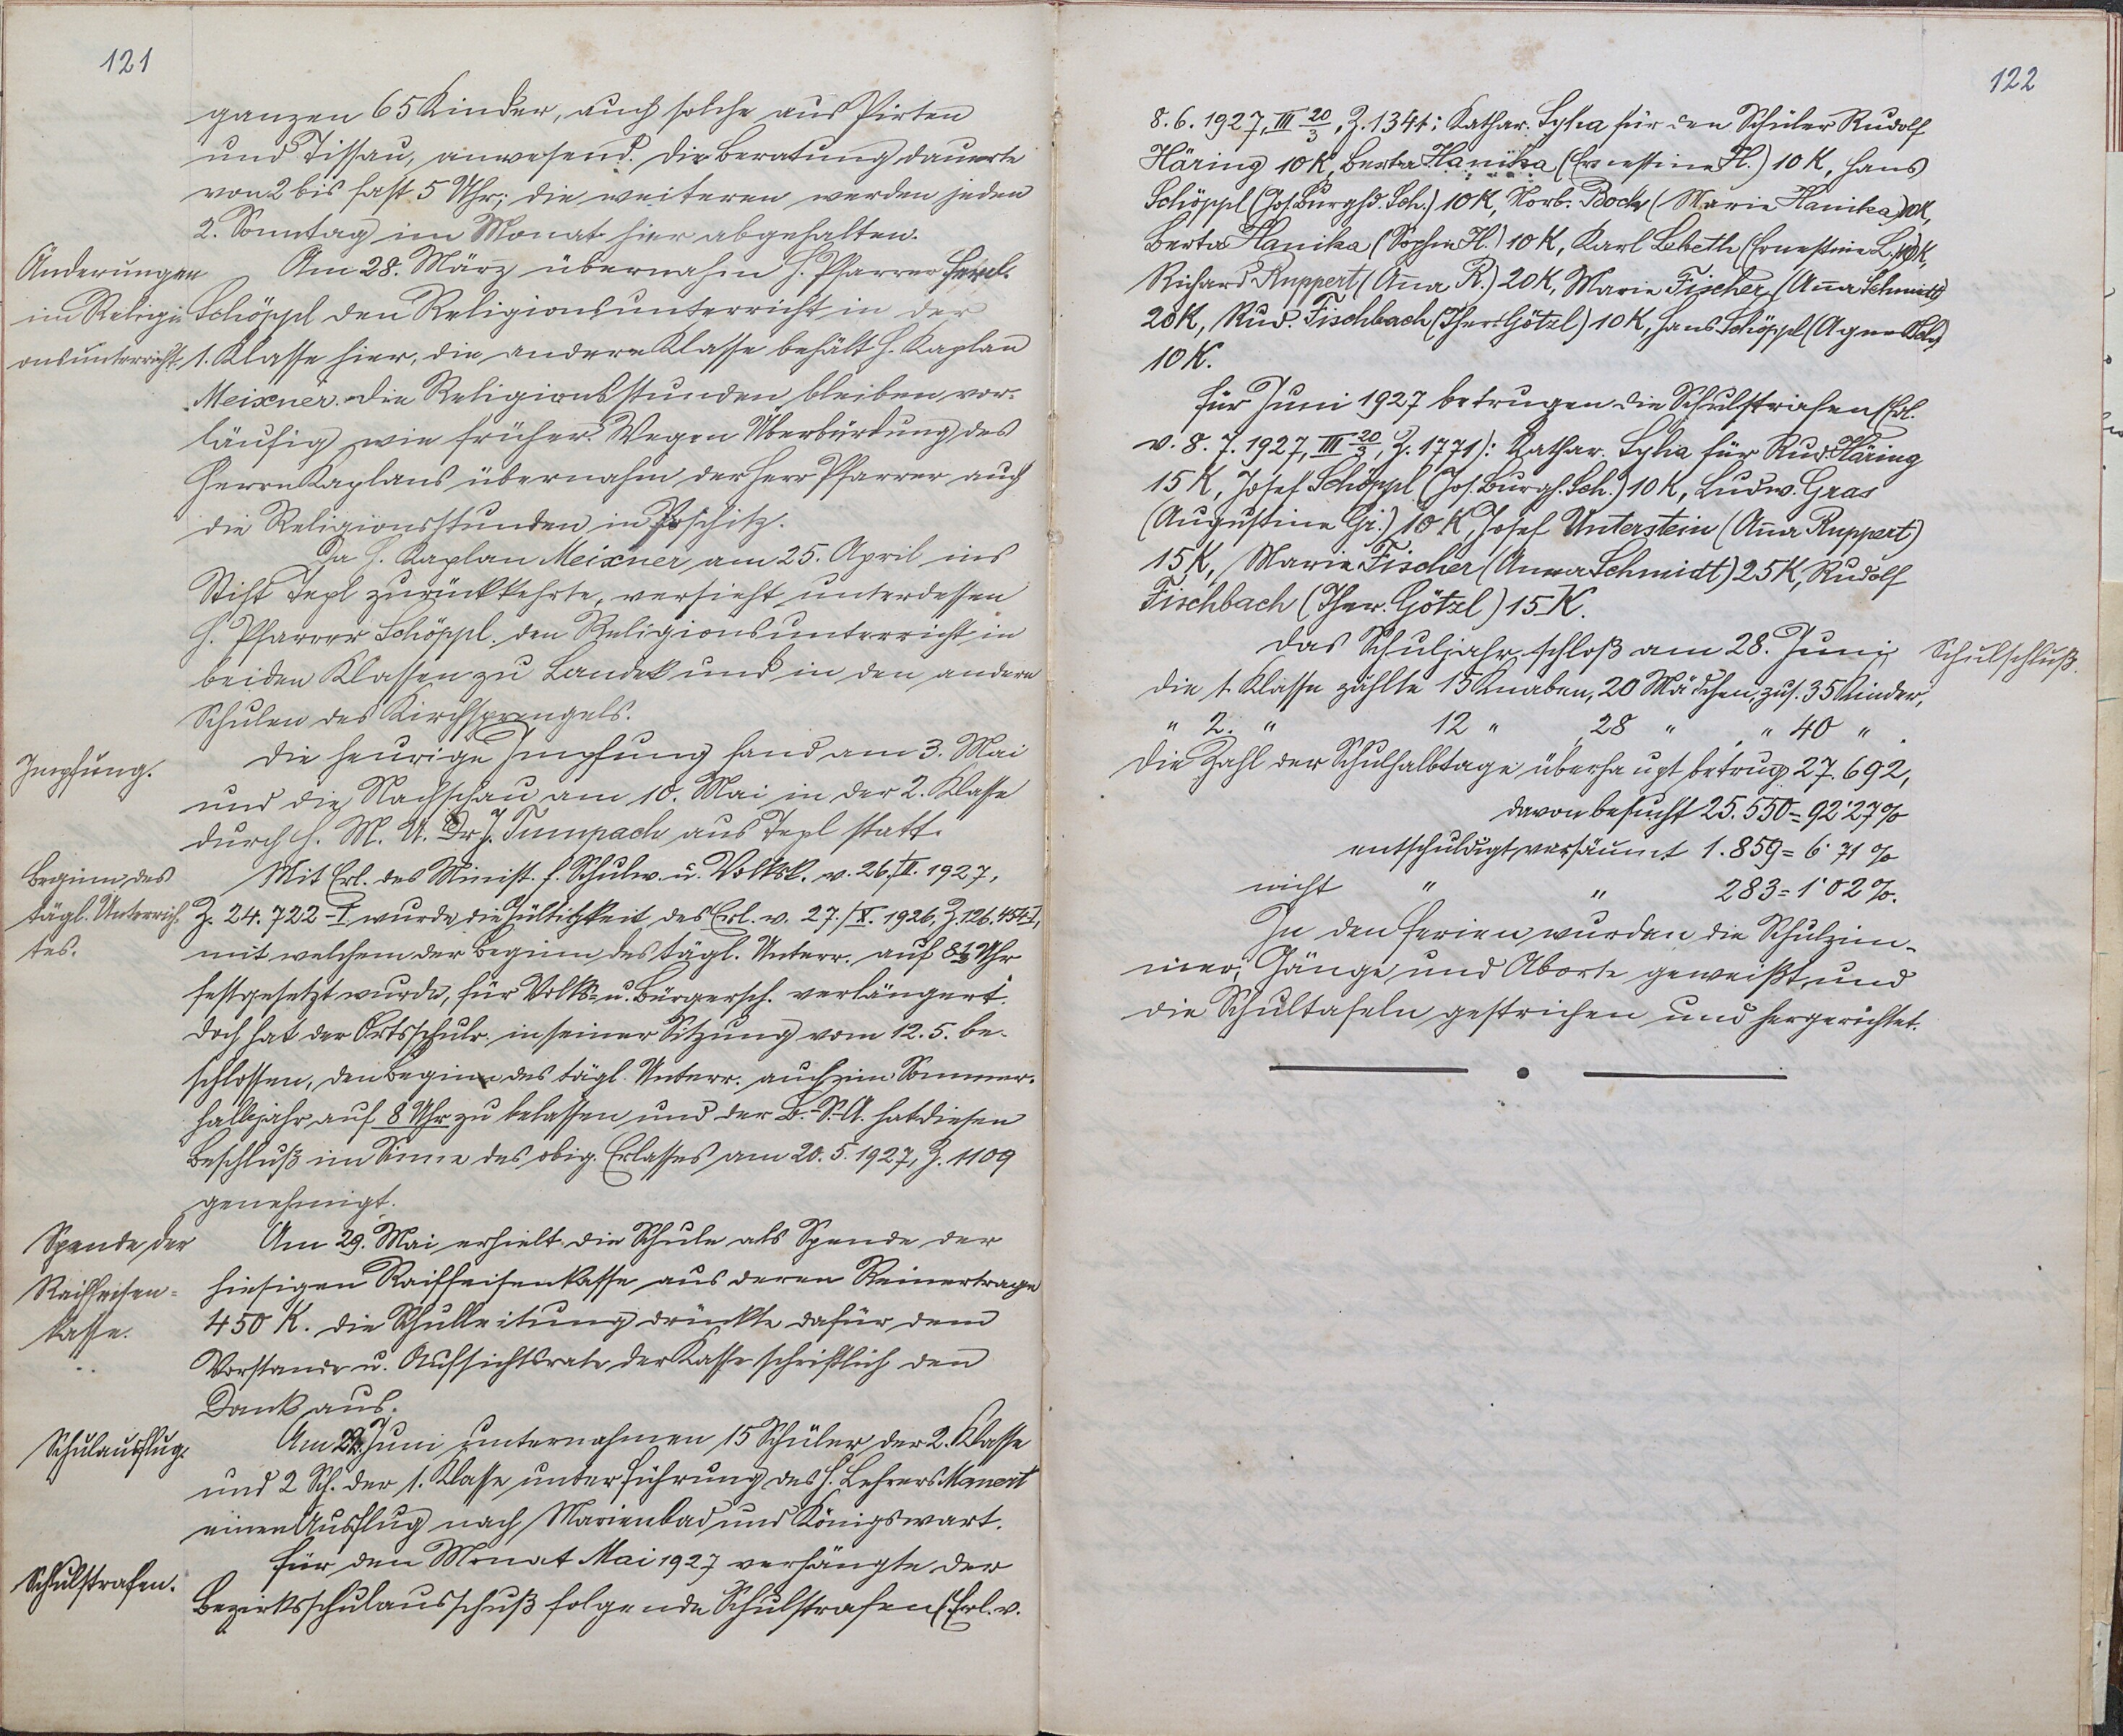 121
ganzen 65 Kinder, auch solche aus Pirten
und Tissau, anwesend. Die Beratung dauerte
von 2 bis fast 5 Uhr; die weiteren werden jeden
2. Sonntag im Monat hier abgehalten.
Änderungen
im Religi-
onsunterricht.
Am 28. März übernahm H. Pfarrer Ferd.
Schöppl den Religionsunterricht in der
1. Klasse hier, die andere Klasse behält H. Kaplan
Meixner. Die Religionsstunden bleiben vor-
läufig wie früher. Wegen Überbürdung des
Herrn Kaplans übernahm der Herr Pfarrer auch
die Religionsstunden in Poschitz.
Da H. Kaplan Meixner am 25. April ins
Stift Tepl zurückkehrte, versieht unterdessen
H. Pfarrer Schöppl den Religionsunterricht in
beiden Klassen zu Landek und in den andern
Schulen des Kirchsprengels.
Impfung.
Die heurige Impfung fand am 3. Mai
und die Nachschau am 10. Mai in der 2. Klasse
durch H. M. U. Dr. J. Tumpach aus Tepl statt.
Beginn des
tägl. Unterrich-
tes.
Mit Erl. des Minist. f. Schulw. u. Volksk. v. 26./II. 1927,
Z. 24.722-I wurde die Gültigkeit des Erl. v. 27./X. 1926, Z. 126.454-I,
mit welchem der Beginn des tägl. Unterr. auf 8½ Uhr
festgesetzt wurde, für Volks- u. Bürgersch. verlängert.
Doch hat der Ortsschulr. in seiner Sitzung vom 12. 5. be-
schlossen, den Beginn des tägl. Unterr. auch im Sommer-
halbjahr auf 8 Uhr zu belassen und der B.-S.-A. hat diesen
Beschluß im Sinne des obig. Erlasses am 20. 5. 1927, Z. 1109
genehmigt.
Spende der
Raiffeisen-
kasse.
Am 29. Mai erhielt die Schule als Spende der
hiesigen Raiffeisenkasse aus deren Reinertrage
450 K. Die Schulleitung drückte dafür dem
Vorstande u. Aufsichtsrate der Kasse schriftlich den
Dank aus.
Schulausflug.
Am 22. Juni unternahmen 15 Schüler der 2. Klasse
und 2 Sch. der 1. Klasse unter Führung des H. Lehrers Manert
einen Ausflug nach Marienbad und Königswart.
Schulstrafen.
Für den Monat Mai 1927 verhängte der
Bezirksschulausschuß folgende Schulstrafen (Erl. v.
122
8. 6. 1927, III 20/3, Z. 1341: Kathar. Syha für den Schüler Rudolf
Häring 10 K, Berta Hanika (Ernestine H.) 10 K, Hans
Schöppl (Jos. Burghd. Sch.) 10 K, Norb. Bock (Marie Hanika) 10 K,
Berta Hanika (Sophie H.) 10 K, Karl Lebeth (Ernestine L.) 10 K,
Richard Ruppert (Anna R.) 20 K, Marie Fischer (Anna Schmidt)
20 K, Rud. Fischbach (Ther. Götzl) 10 K, Hans Schöppl (Agnes Sch.)
10 K.
Für Juni 1927 betrugen die Schulstrafen (Erl.
v. 8. 7. 1927, III 20/3, Z. 1771): Kathar. Syha für Rud. Häring
15 K, Josef Schöppl (Jos. Burgh. Sch.) 10 K, Ludw. Gras
(Augustine Gr.) 10 K, Josef Unterstein (Anna Ruppert)
15 K, Marie Fischer (Anna Schmidt) 25 K, Rudolf
Fischbach (Ther. Götzl) 15 K.
Das Schuljahr schloß am 28. Juni
Schulschluß.
Die 1. Klasse zählte 15 Knaben, 20 Mädchen, zus. 35 Kinder,
" 2. " 12 " 28 " " 40 " .
Die Zahl der Schulhalbtage überhaupt betrug 27.692,
davon besucht 25.550 = 92·27 %
entschuldigt versäumt 1.859 = 6·71 %
nicht " " 283 = 1·02 %.
In den Ferien wurden die Schulzim-
mer, Gänge und Aborte geweißt und
die Schultafeln gestrichen und hergerichtet.